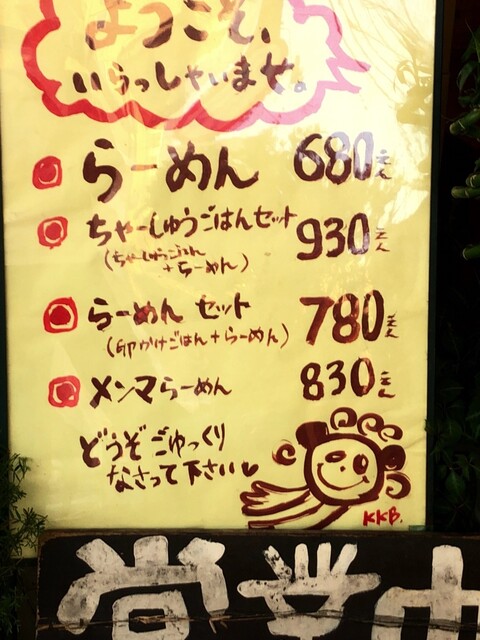 ようこそ、
いらっしゃいませ。
らーめん 680えん
ちゃーしゅうごはんセット 930えん
(ちゃーしゅうごはん
+らーめん)
らーめん セット 780えん
(卵かけごはん+らーめん)
メンマらーめん 830えん
どうぞごゆっくり
なさって下さい
KKB.
営業中